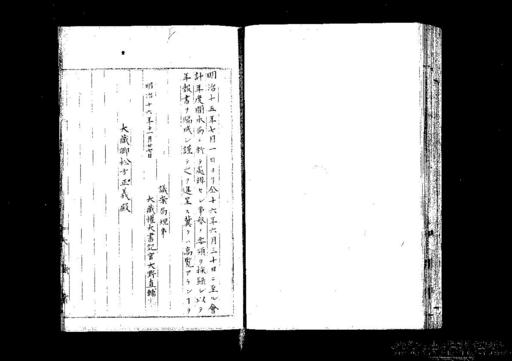 明治十五年七月一日ヨリ仝十六年六月三十日ニ至ル會
計年度間本局ニ於テ處理セシ事務ノ要領ヲ採録シ以テ
年報書ヲ編成シ謹テ之ヲ進呈ス冀クハ高覧アランヿヲ
明治十六年十一月廿七日
議案局理事
大藏權大書記官大野直輔
大藏卿松方正義殿